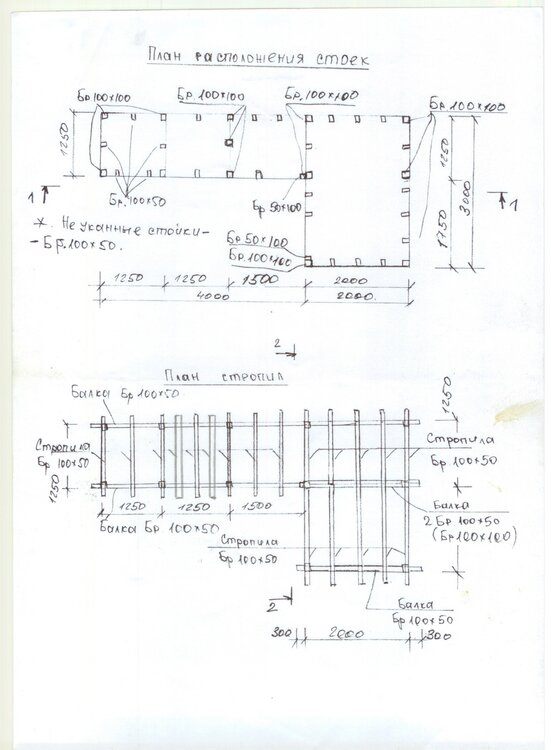 План расположения стоек
Бр 100×100
Бр. 100×100
Бр. 100×100
Бр 100×100
1250
1250
3000
1750
1
1
Бр. 100×50
Бр 50×100
*. Не указанные стойки-
- Бр. 100×50.
Бр 50×100
Бр. 100×100
1250
1250
1500
2000
4000
2000
2
План стропил
Балка Бр 100×50
1250
Стропила
Бр 100×50
Стропила
Бр 100×50
1250
1250
1250
1500
Балка Бр 100×50
Балка
2 Бр 100×50
(Бр 100×100)
Стропила
Бр 100×50
2
Балка
Бр 100×50
300
2000
300